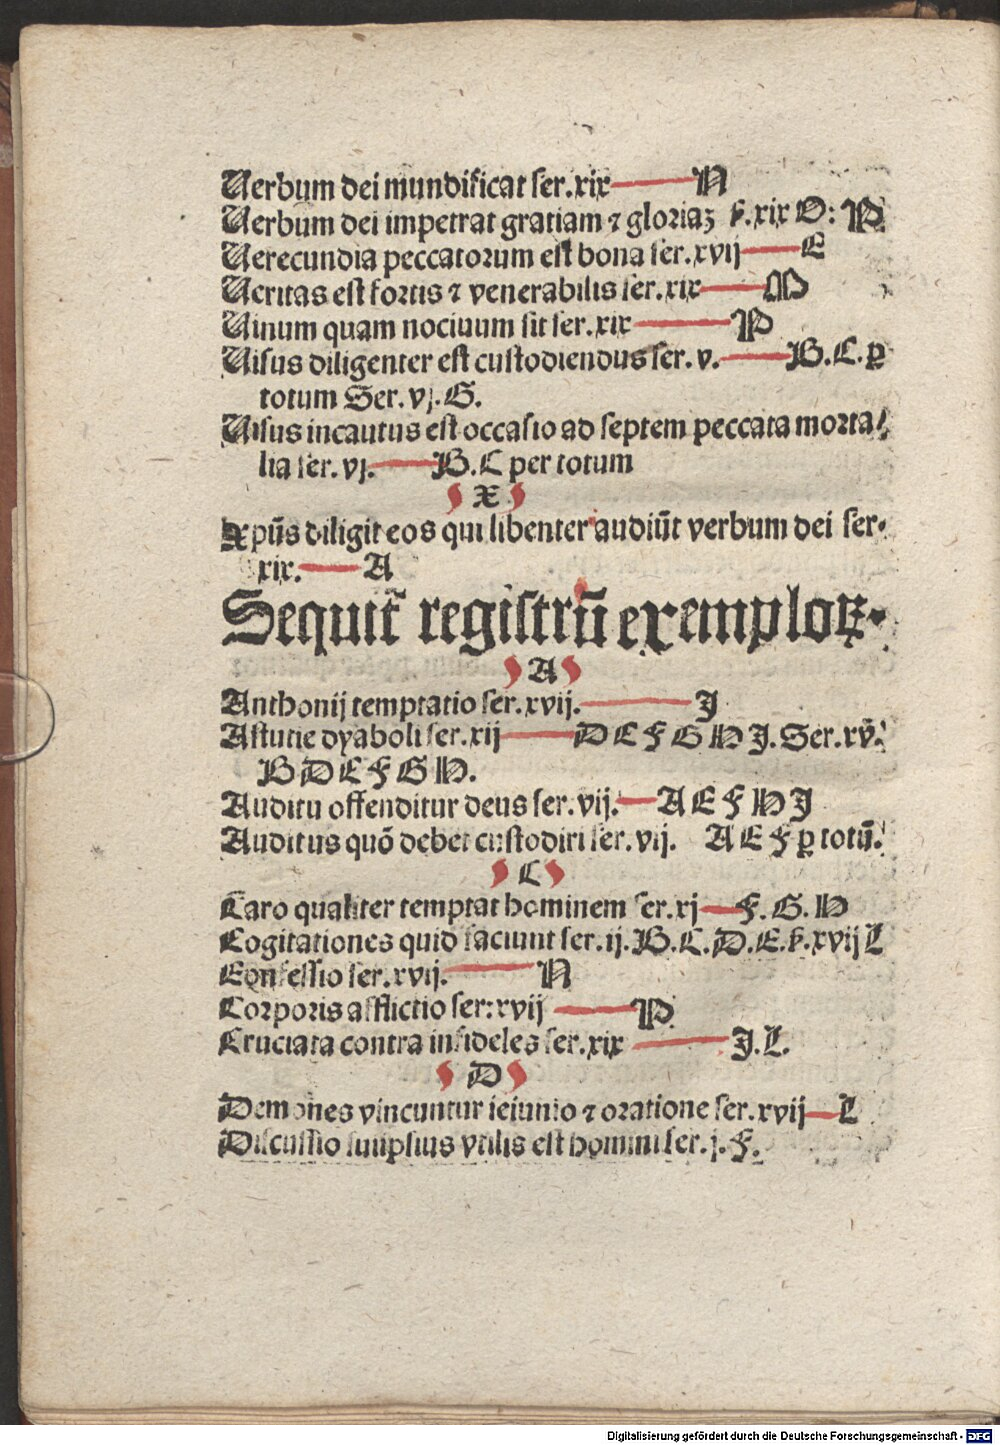 Uerbum dei mundificat ser.xix N
Uerbum dei impetrat gratiam ⁊ gloriaꝫ s.xix O: P
Uerecundia peccatorum est bona ser.xvij E
Ueritas est fortis ⁊ venerabilis ser.xix M
Uinum quam nociuum sit ser.xix P
Uisus diligenter est custodiendus ser.v. B.C.ꝑ
totum Ser.vj.G.
Uisus incautus est occasio ad septem peccata morta/
lia ser.vj. B.C per totum
X
Xpūs diligit eos qui libenter audiūt verbum dei ser.
xix. A
Sequit᷑ registrū exemploꝝ.
A
Anthonij temptatio ser.xvij. J
Astutie dyaboli ser.xij D E F G H J. Ser.xv.
B D E F G H.
Auditu offenditur deus ser.vij. A E F H J
Auditus quō debet custodiri ser.vij. A E F ꝑ totū.
C
Caro qualiter temptat hominem ser.xj F.G.H
Cogitationes quid faciunt ser.ij.B.C.D.E.s.xvij L
Confessio ser.xvij. N
Corporis afflictio ser:xvij P
Cruciata contra infideles ser.xix J.L.
D
Demones vincuntur ieiunio ⁊ oratione ser.xvij L
Discussio suiipsius vtilis est homini ser.j.F.
Digitalisierung gefördert durch die Deutsche Forschungsgemeinschaft - DFG